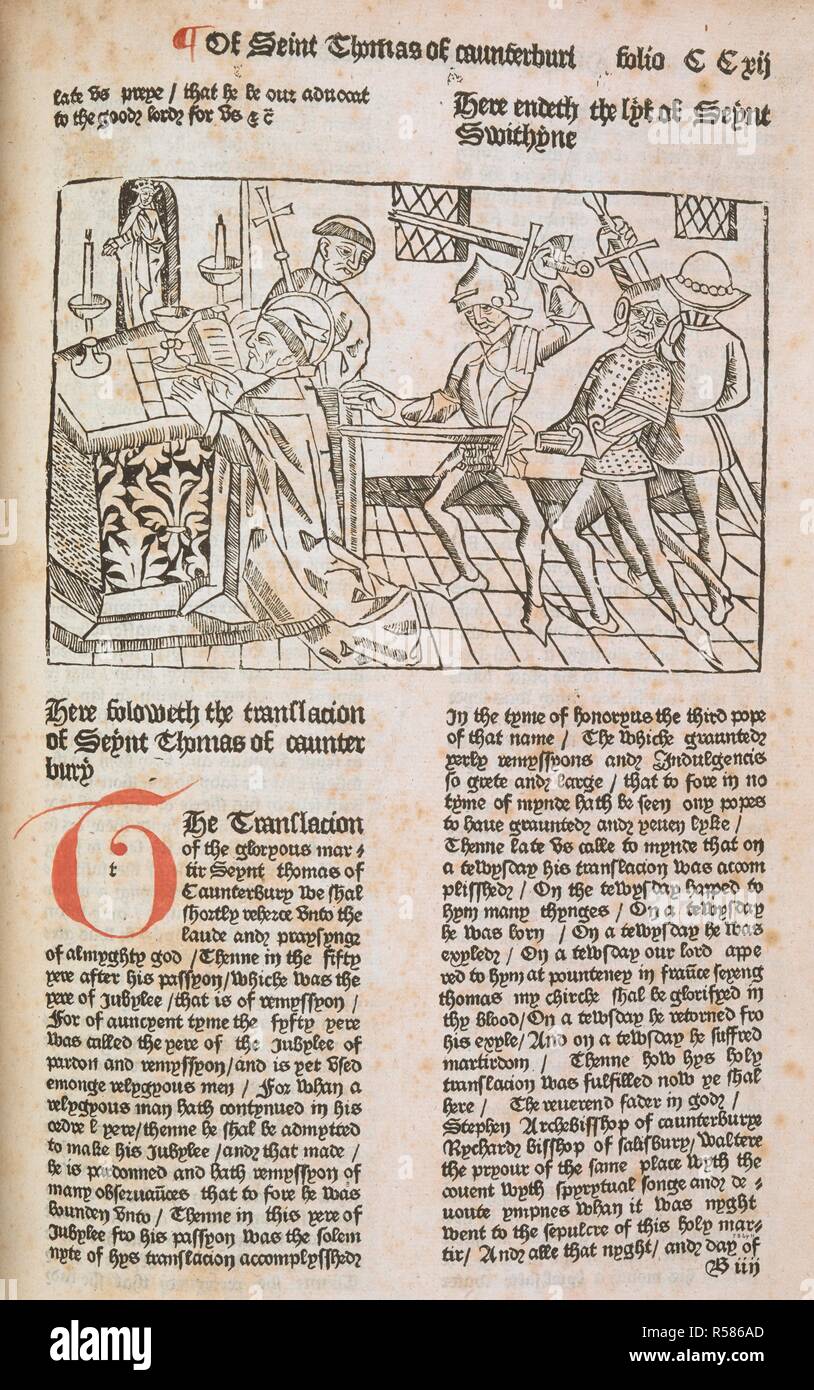 ¶ Of Seint Thomas of caunterburi folio C C xij
late vs preye / that he be our aduocat
to the good lord for vs &c
Here endeth the lyf of Seynt
Swithyne
Here foloweth the translacion
of Seynt Thomas of caunter
bury
THe Translacion
of the gloryous mar⸗
tir Seynt thomas of
Caunterbury we shal
shortly reherce vnto the
laude and praysyng
of almyghty god / Thenne in the fifty
yere after his passyon / whiche was the
yere of Jubylee / that is of remyssyon /
For of auncyent tyme the fyfty yere
was callyd the yere of the Jubylee of
pardon and remyssyon / and is yet vsed
emonge relygyous men / For whan a
relygyous man hath contynued in his
ordre l yere / thenne he shal be admytted
to make his Jubylee / and that made /
he is pardonned and hath remyssyon of
many obseruaūces that to fore he was
bounden vnto / Thenne in this yere of
Jubylee fro his passyon was the solem
nyte of hys translacion accomplysshed
In the tyme of honoryus the third pope
of that name / The whiche graunted
yerly remyssyons and Indulgencis
so grete and large / that to fore in no
tyme of mynde hath be seen ony popes
to haue graunted and yeuen lyke /
Thenne late vs calle to mynde that on
a tewysday his translacion was accom
plisshed / On the tewysday happed to
hym many thynges / On a tewysday
he was born / On a tewysday he was
exyled / On a tewsday our lord appe
red to hym at pounteney in fraūce seyeng
thomas my chirche shal be glorifyed in
thy blood / On a tewsday he retorned fro
his exyle / And on a tewsday he suffred
martirdom / Thenne how hys holy
translacion was fulfilled now ye shal
here / The reuerend fader in god /
Stephen Archebisshop of caunterburye
Rychard bisshop of salisbury / waltere
the pryour of the same place wyth the
couent wyth spyrytual songe and de⸗
uoute ympnes whan it was nyght
went to the sepulcre of this holy mar⸗
tir / And alle that nyght / and day of
B iiij
alamy
Image ID: R586AD
www.alamy.com